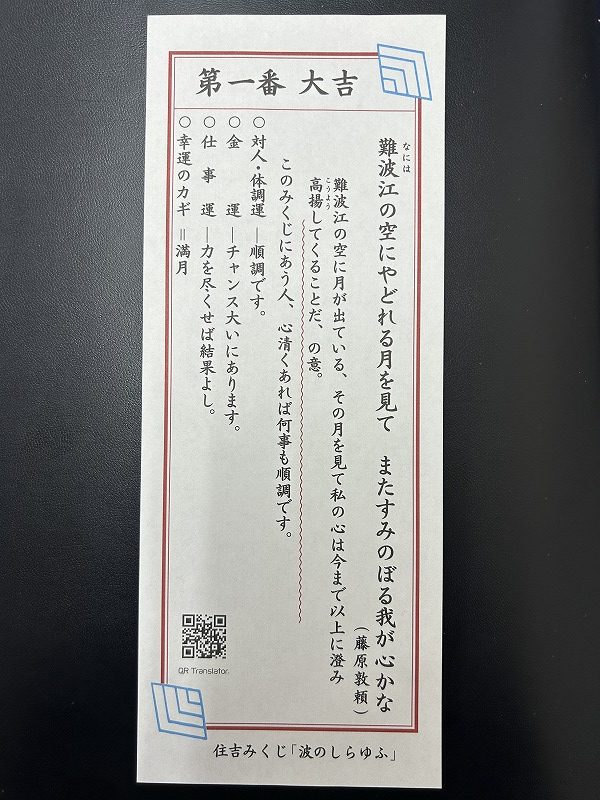 第一番 大吉
なには
難波江の空にやどれる月を見て またすみのぼる我が心かな
(藤原敦頼)
難波江の空に月が出ている、その月を見て私の心は今まで以上に澄み
こうよう
高揚してくることだ、の意。
このみくじにあう人、心清くあれば何事も順調です。
〇対人・体調運―順調です。
〇金運―チャンス大いにあります。
〇仕事運―力を尽くせば結果よし。
〇幸運のカギ=満月
QR Translator
住吉みくじ「波のしらゆふ」